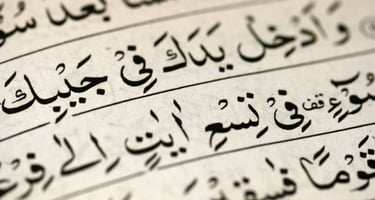 ا بعد سو
وَاَدْخِلْ يَدَكَ فِيْ جَيْبِكَ
سُوْٓءٍ قف فِيْ تِسْعِ اٰيٰتٍ اِلٰى فِرْعَ
قَوْمًا فٰسِقِيْنَ